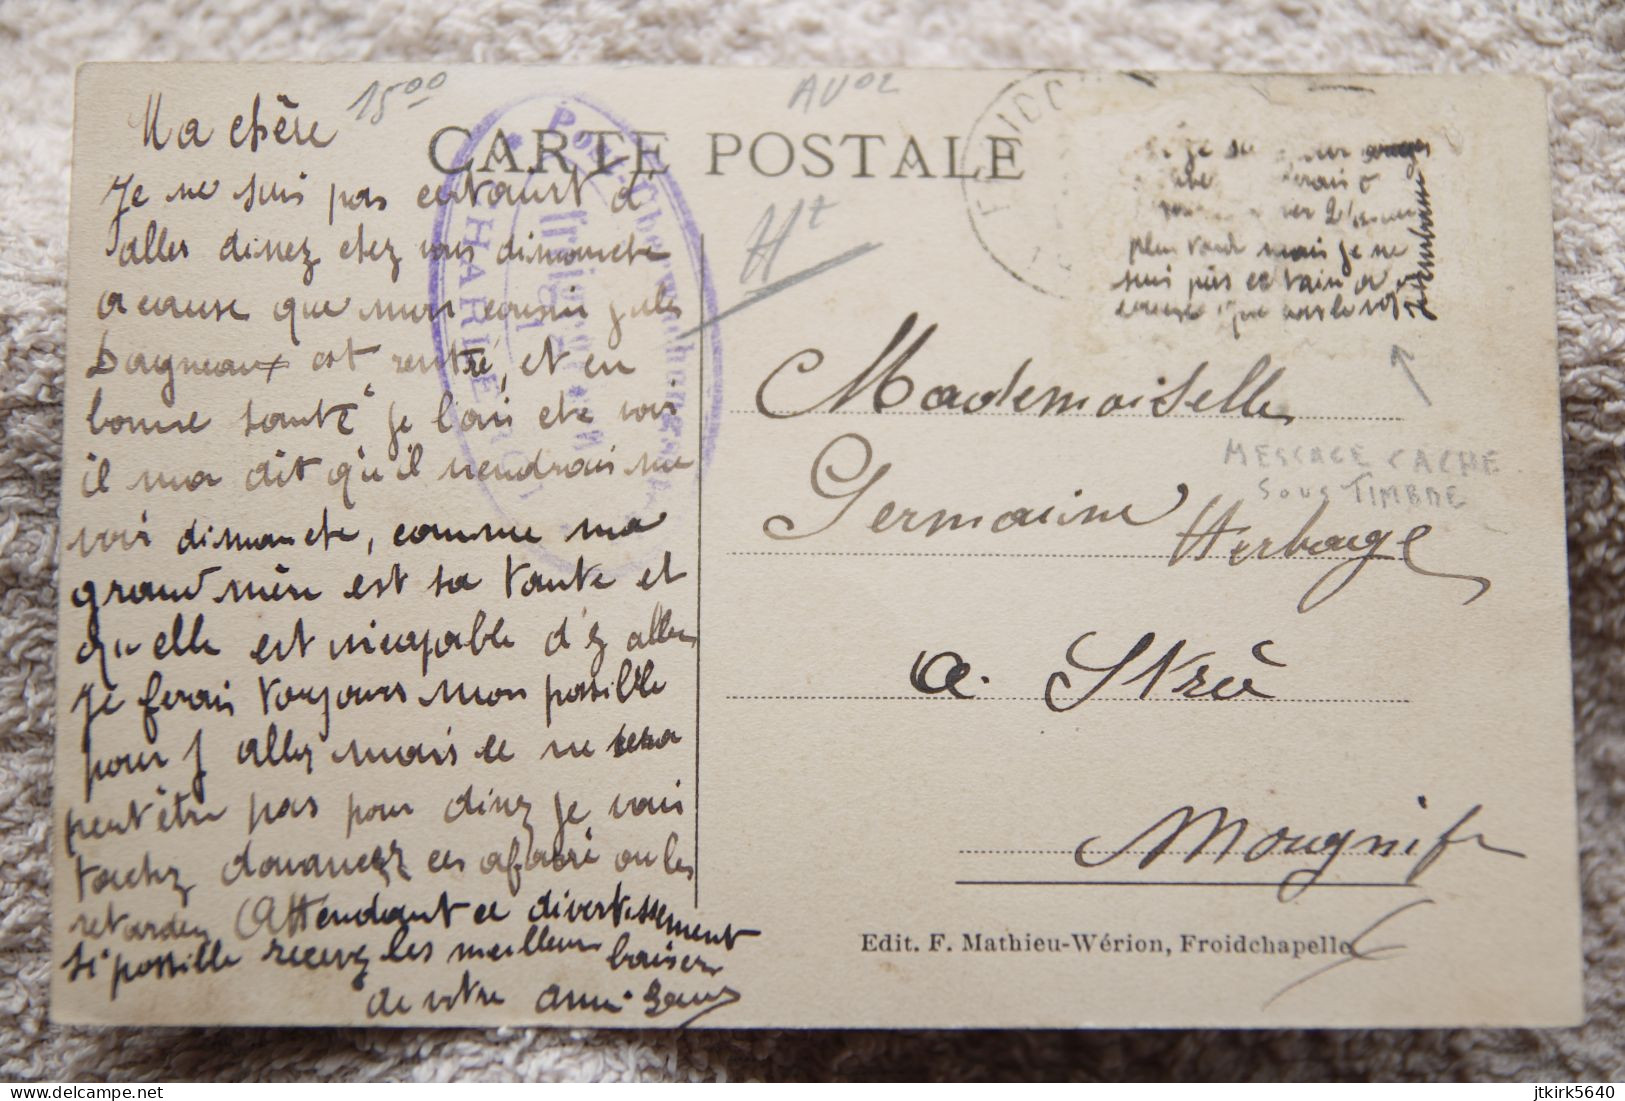 Ma chère
15 00
AU 02
CARTE POSTALE
Je ne suis pas certaint d
aller dinez chez vous dimanche
a cause que mon cousin jules
Dagneaux est rentré, et en
bonne santé je lais été voir
il ma dit qu'il viendrais me
voir dimanche, comme ma
grand mère est sa tante et
qu'elle est incapable d'y aller
je ferai toujours mon possible
pour y allez mais ce ne sera
peut être pas pour dinez je vais
tachez davancez ces affaire ou les
retardez Attendant ce divertissement
si possible recevez les meilleurs baisers
de votre ami
CHARLEROI
Ht
FROIDC
plus tard mais je ne
suis pas certain a
cause que
MESSAGE CACHE
SOUS TIMBRE
Mademoiselle
Germaine Herbage
a. Strée
Edit. F. Mathieu-Wérion, Froidchapelle
jtkirk5640